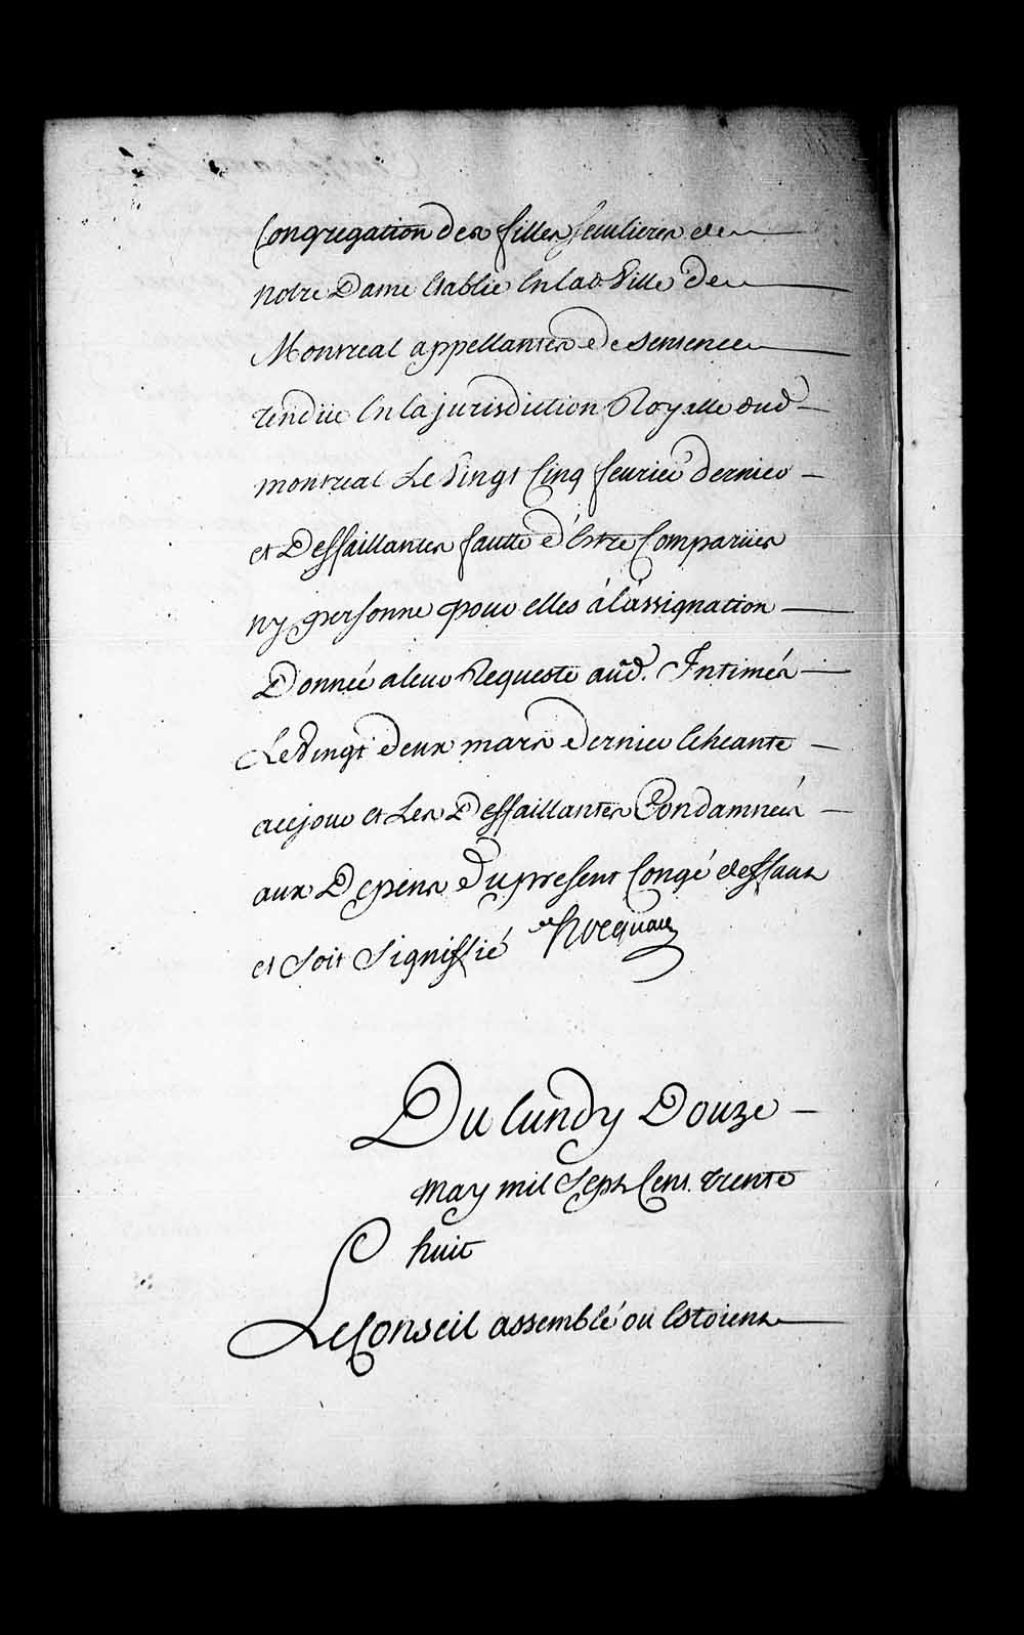 Congregation des filles seculieres de
notre Dame Etablie En lad. Ville de
Montreal appellantes de sentence
rendüe En la jurisdiction Royalle dud
montreal Le Vingt Cinq feurier dernier
et Deffaillantes fautte d'Estre Comparües
ny personne pour elles à l'assignation
Donnée a leur Requeste aud. Intimés
Le Vingt deux mars dernier Echeante
a ce jour et Les Deffaillantes Condamnées
aux Depens du present Congé deffaut
et soit signiffié Hocquart
Du lundy Douze
may mil sept Cent trente
huit
Le Conseil assemblé ou Estoient